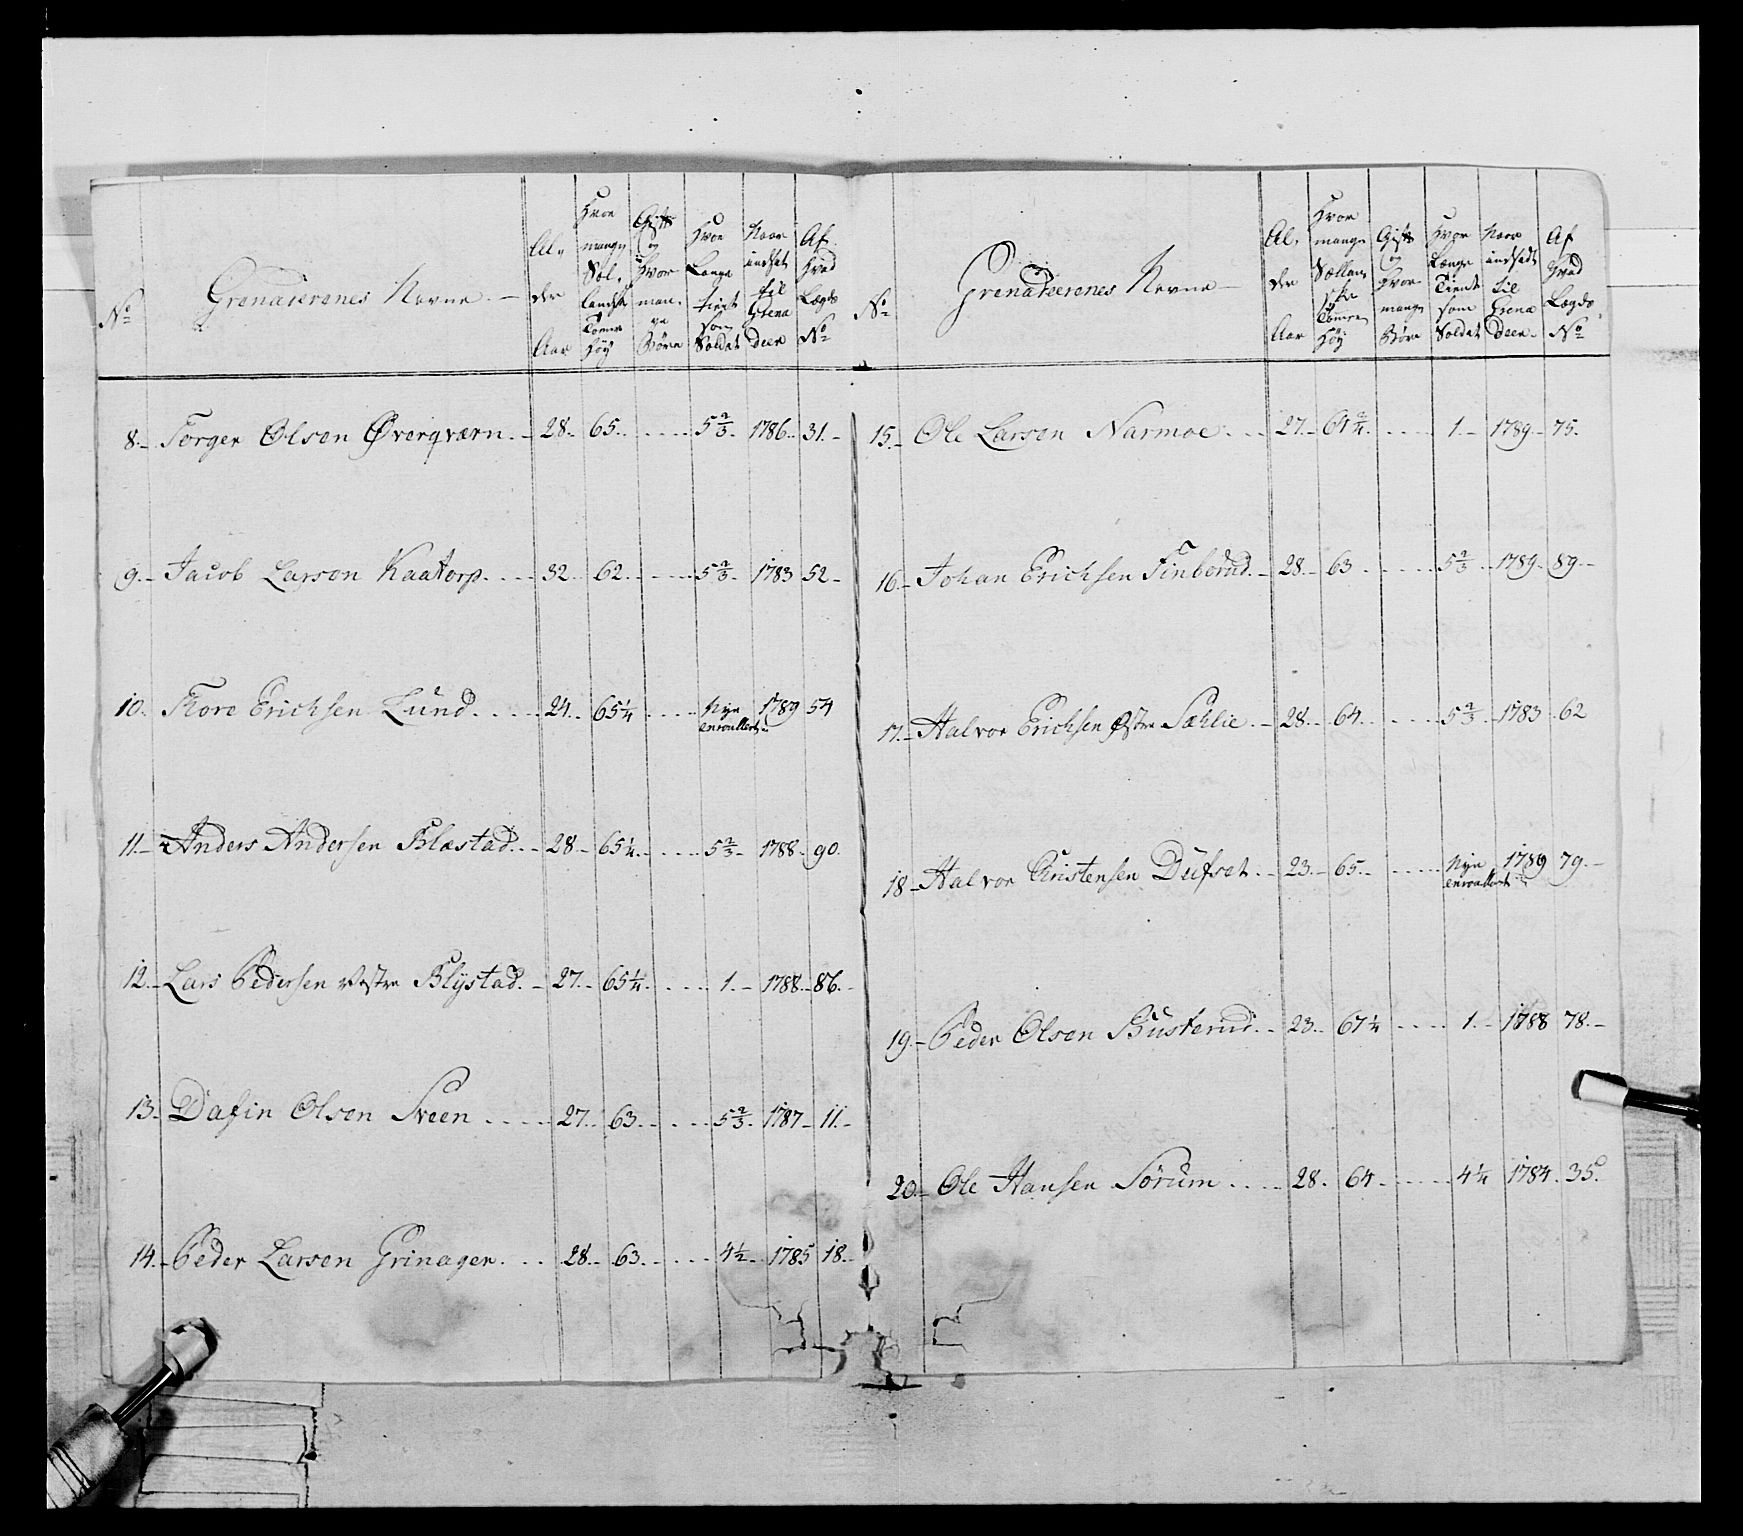 No
Grenaderenes Navne. —
Al„
der
Aar
Hvor
mange
Sel„
landske
Tomer
høy
Gift
og
Hvor
man„
ge
Børn
Hvor
Længe
tient
som
Soldat
Naar
indsat
til
Grena
deer
Af
Hvad
Lægds
No
8. Torger Olsen Øverqværn. 28. 65. 5 2/3. 1786. 31.
9. Jacob Larsen Kaatorp. 32. 62. 5 2/3. 1783 52.
10. Thore Erichsen Lund. 24. 65 1/4 Nye enroullert 1789 54
11. Anders Andersen Blæstad. 28. 65 1/4. 5 2/3. 1788. 90.
12. Lars Pedersen Vestre Blystad. 27. 65 1/4. 1. 1788. 86.
13. Dafin Olsen Sveen 27. 63. 5 2/3. 1787. 11.
14. Peder Larsen Grinager. 28. 63. 4 1/2. 1785 18.
No
Grenadeerenes Nevne —
Al„
der
Aar
Hvor
mange
Sællan„
ske
Tommer
Høy
Gift
og
Hvor
mange
Børn
Hvor
Længe
Tient
som
Soldat
Naar
indsadt
til
Grena
deer.
Af
Hvad
Lægds
No
15. Ole Larsen Narmoe. 27. 64 2/4. 1. 1789. 75.
16. Johan Erichsen Finborud. 28. 63. 5 2/3. 1789. 89.
17. Halvor Erichsen Østre Sæhlie. 28. 64. 5 2/3. 1783. 62
18. Halvor Christensen Dufset. 23. 65. Nye enroullert 1789 79.
19. Peder Olsen Busterud. 23. 67 1/4 1. 1788 78.
20. Ole Hansen Sørum. 28. 64. 4 1/4 1784. 35.